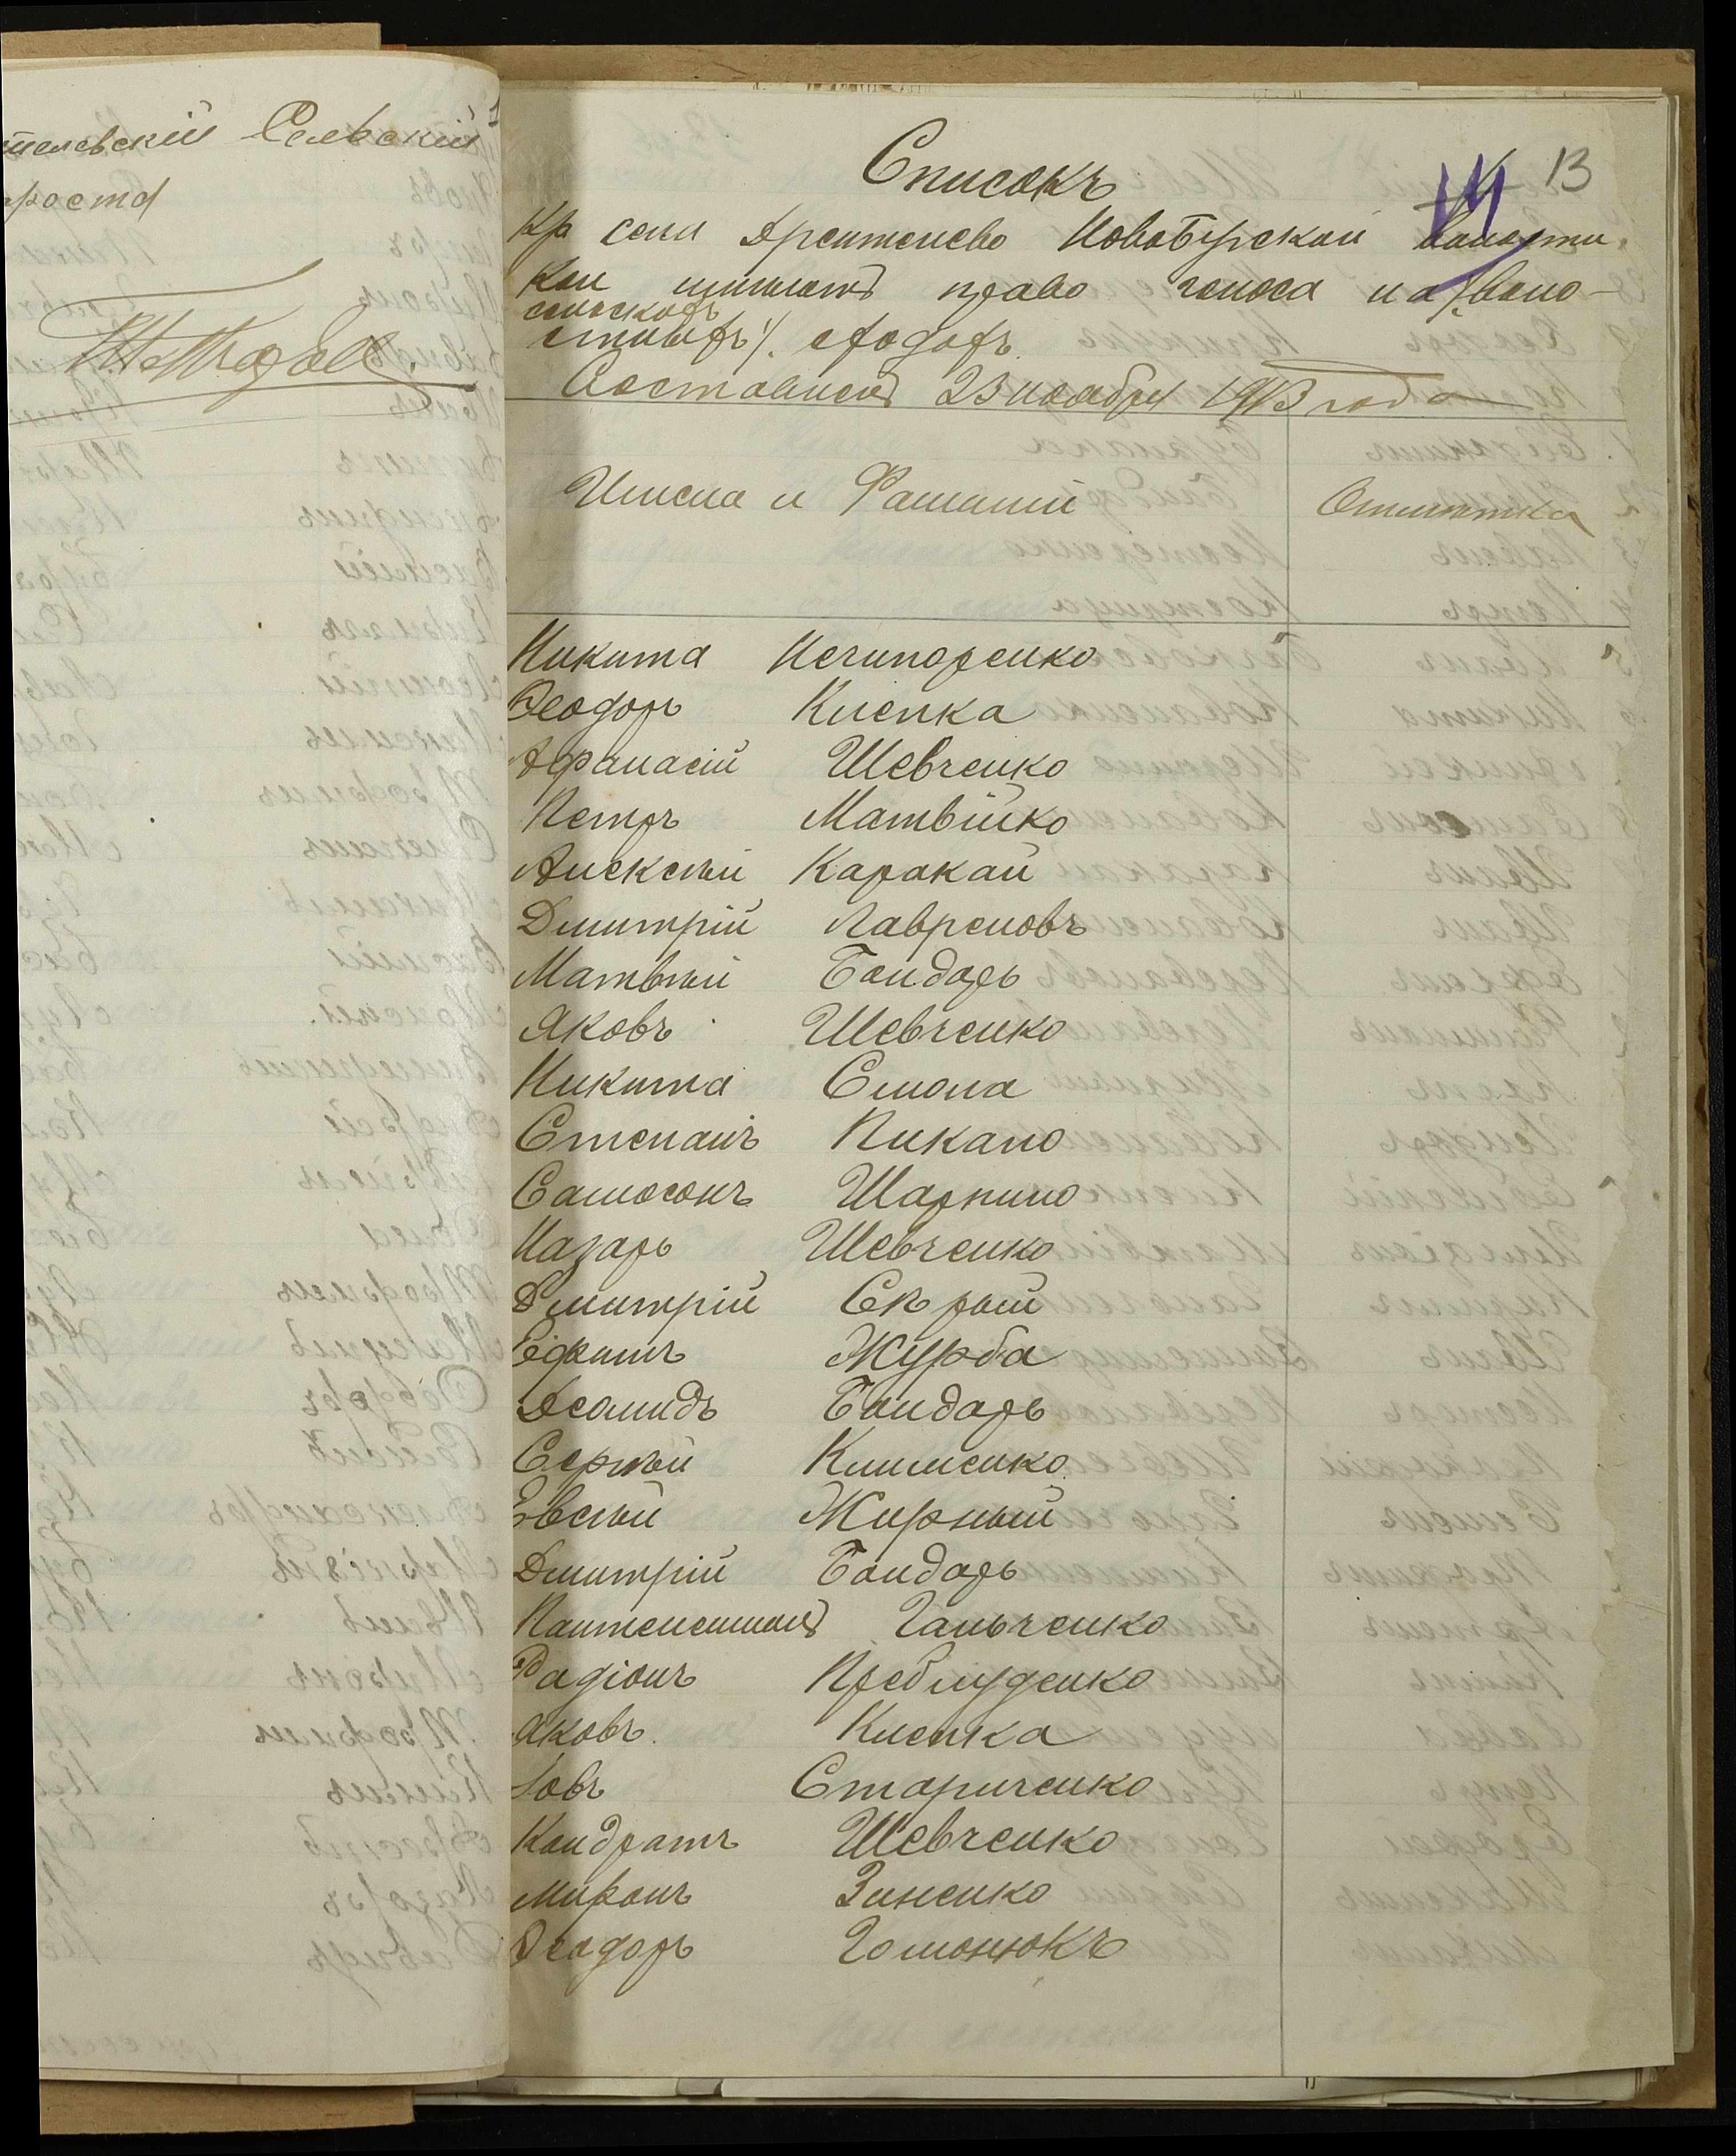 телевскій Сельскій
роста
13
Списокъ
кр села Артемьево Новобугской волости
кои имѣютъ право голоса на воло-
сельскомъ
стномъ сходахъ.
Составленъ 23 ноября 1913 года
Имена и Фамиліи
Отмѣтка
Никита Нечипоренко
Феодоръ Клепка
Афанасій Шевченко
Петръ Матвійко
Алексѣй Каракай
Дмитрій Лавреновъ
Матвѣй Бондарь
Яковъ Шевченко
Никита Смола
Степанъ Пикало
Самосонъ Шарпило
Назаръ Шевченко
Дмитрій Скрый
Ефимъ Журба
Деомидъ Бондарь
Сергѣй Клименко
Евсѣй Жирный
Дмитрій Бондарь
Пантелеимонъ Гальченко
Радіонъ Преблуденко
Яковъ Клепка
Іовъ Стариченко
Кондратъ Шевченко
Миронъ Зиненко
Феодоръ Гомонюкъ